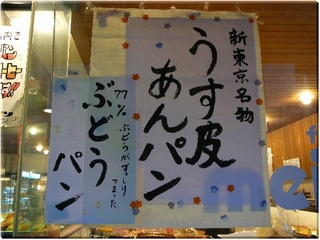 新東京名物
うす皮
あんパン
77%
ぶどうがぎっしり
つまった
ぶどう
パン
mei